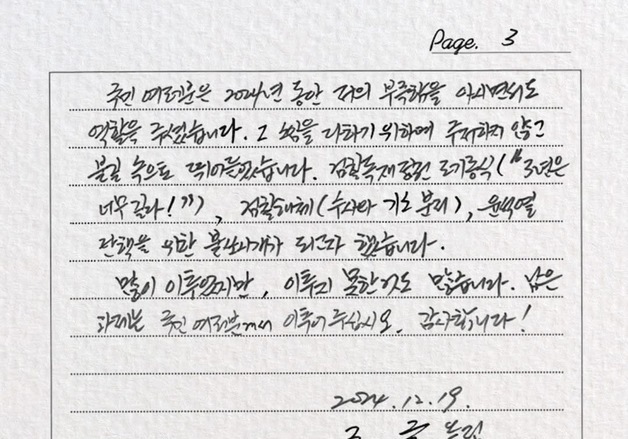 Page. 3
국민 여러분은 2024년 동안 저의 부족함을 아시면서도
역할을 주셨습니다. 그 소임을 다하기 위하여 주저하지 않고
불길 속으로 뛰어들었습니다. 검찰독재정권 조기종식("3년은
너무 길다!"), 검찰해체(수사와 기소 분리), 윤석열
탄핵을 위한 불쏘시개가 되고자 했습니다.
많이 이루었지만, 이루지 못한 것도 많습니다. 남은
과제는 국민 여러분께서 이루어 주십시오. 감사합니다!
2024.12.19.
조 국 올림